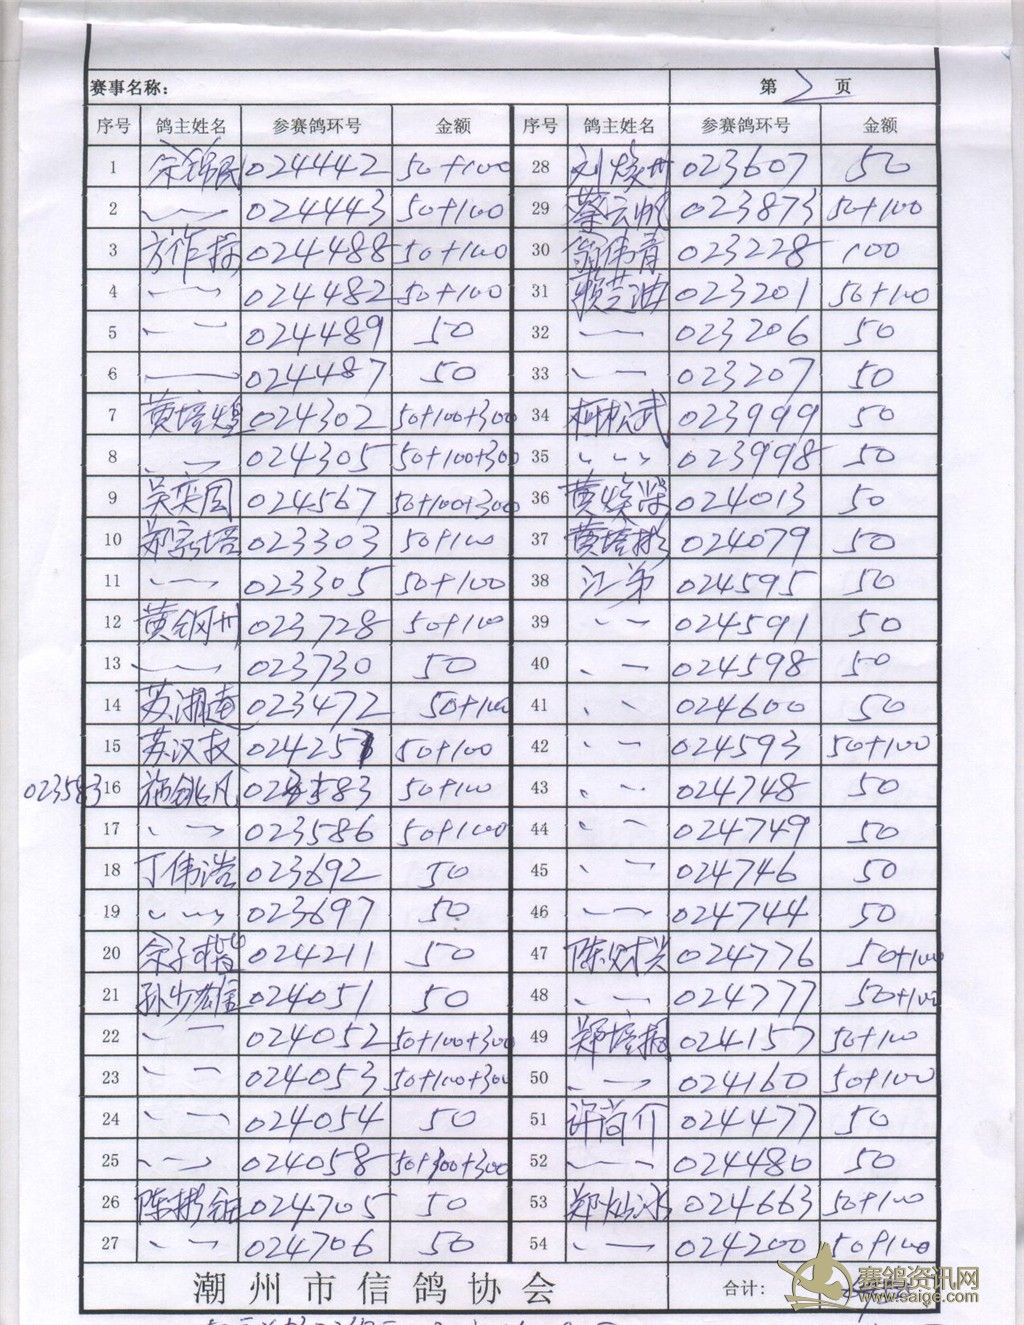 赛事名称： 第 2 页
序号 鸽主姓名 参赛鸽环号 金额 序号 鸽主姓名 参赛鸽环号 金额
1 余锦民 024442 50+100 28 刘焕州 023607 50
2 〃 024443 50+100 29 蔡云帆 023873 50+100
3 方作振 024488 50+100 30 翁伟青 023228 100
4 〃 024482 50+100 31 023201 50+100
5 〃 024489 50 32 〃 023206 50
6 〃 024487 50 33 〃 023207 50
7 黄培煌 024302 50+100+300 34 柯松武 023999 50
8 〃 024305 50+100+300 35 〃 023998 50
9 吴奕园 024567 50+100+300 36 黄焕荣 024013 50
10 郑家培 023303 50+100 37 黄培彬 024079 50
11 〃 023305 50+100 38 江弟 024595 50
12 黄钢州 023728 50+100 39 〃 024591 50
13 〃 023730 50 40 〃 024598 50
14 苏湘 023472 50+100 41 〃 024600 50
15 苏汉 024257 50+100 42 〃 024593 50+100
023583 16 50+100 43 〃 024748 50
17 〃 023586 50+100 44 〃 024749 50
18 丁伟浩 023692 50 45 〃 024746 50
19 〃 023697 50 46 〃 024744 50
20 余子楷 024211 50 47 陈财兴 024776 50+100
21 孙少 024051 50 48 〃 024777 50+100
22 〃 024052 50+100+300 49 郑培 024157 50+100
23 〃 024053 50+100+300 50 〃 024160 50+100
24 〃 024054 50 51 许尚介 024477 50
25 〃 024058 50+100+300 52 〃 024480 50
26 陈彬 024705 50 53 郑灿 024663 50+100
27 〃 024706 50 54 〃 024200 50+100
潮州市信鸽协会 合计：
赛鸽资讯网
www.saige.com